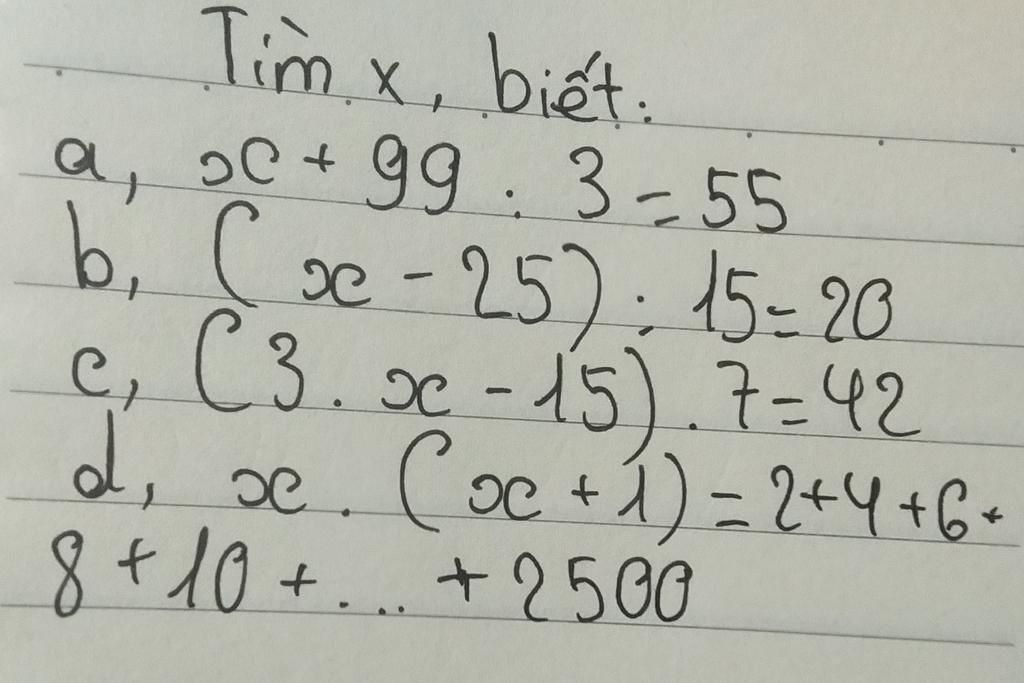 Tìm x, biết:
a, x + 99 : 3 = 55
b, (x - 25) : 15 = 20
c, (3 . x - 15) . 7 = 42
d, x . (x + 1) = 2 + 4 + 6 +
8 + 10 + ... + 2500